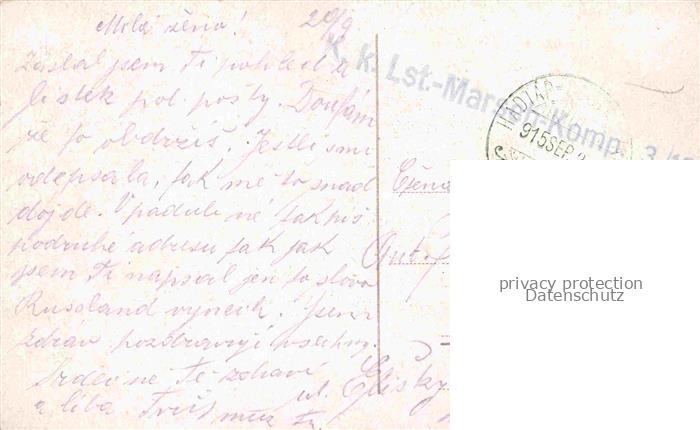 Milá ženo! 20/9
Zaslal jsem Ti pohled a
lístek pol. pošty. Doufám
že to obdržíš. Jestli mi
odepsala, tak mě to snad
dojde. V padule né tak piš
podruhé adresu tak jak
jsem Ti napsal jen to slovo
Russland vynech. Jsem
zdráv pozdravuji všechny.
Srdečně Tě zdraví
a líbá Tvůj muž
K. k. Lst.-Marsch-Komp. 3/
915 SEP
Ctěná
Ant.
ul. Elišky
privacy protection
Datenschutz